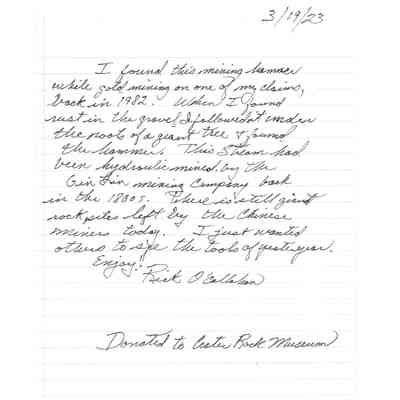 3/19/23
I found this mining hammer
while gold mining on one of my claims,
back in 1982. When I found
rust in the gravel I followed it under
the roots of a giant tree & found
the hammer. This stream had
been hydraulic mined by the
Gin Lin mining Company back
in the 1880s. There is still giant
rock piles left by the Chinese
miners today. I just wanted
others to see the tools of yesteryear.
Enjoy!
Rick O'Callahan
Donated to Crater Rock Museum